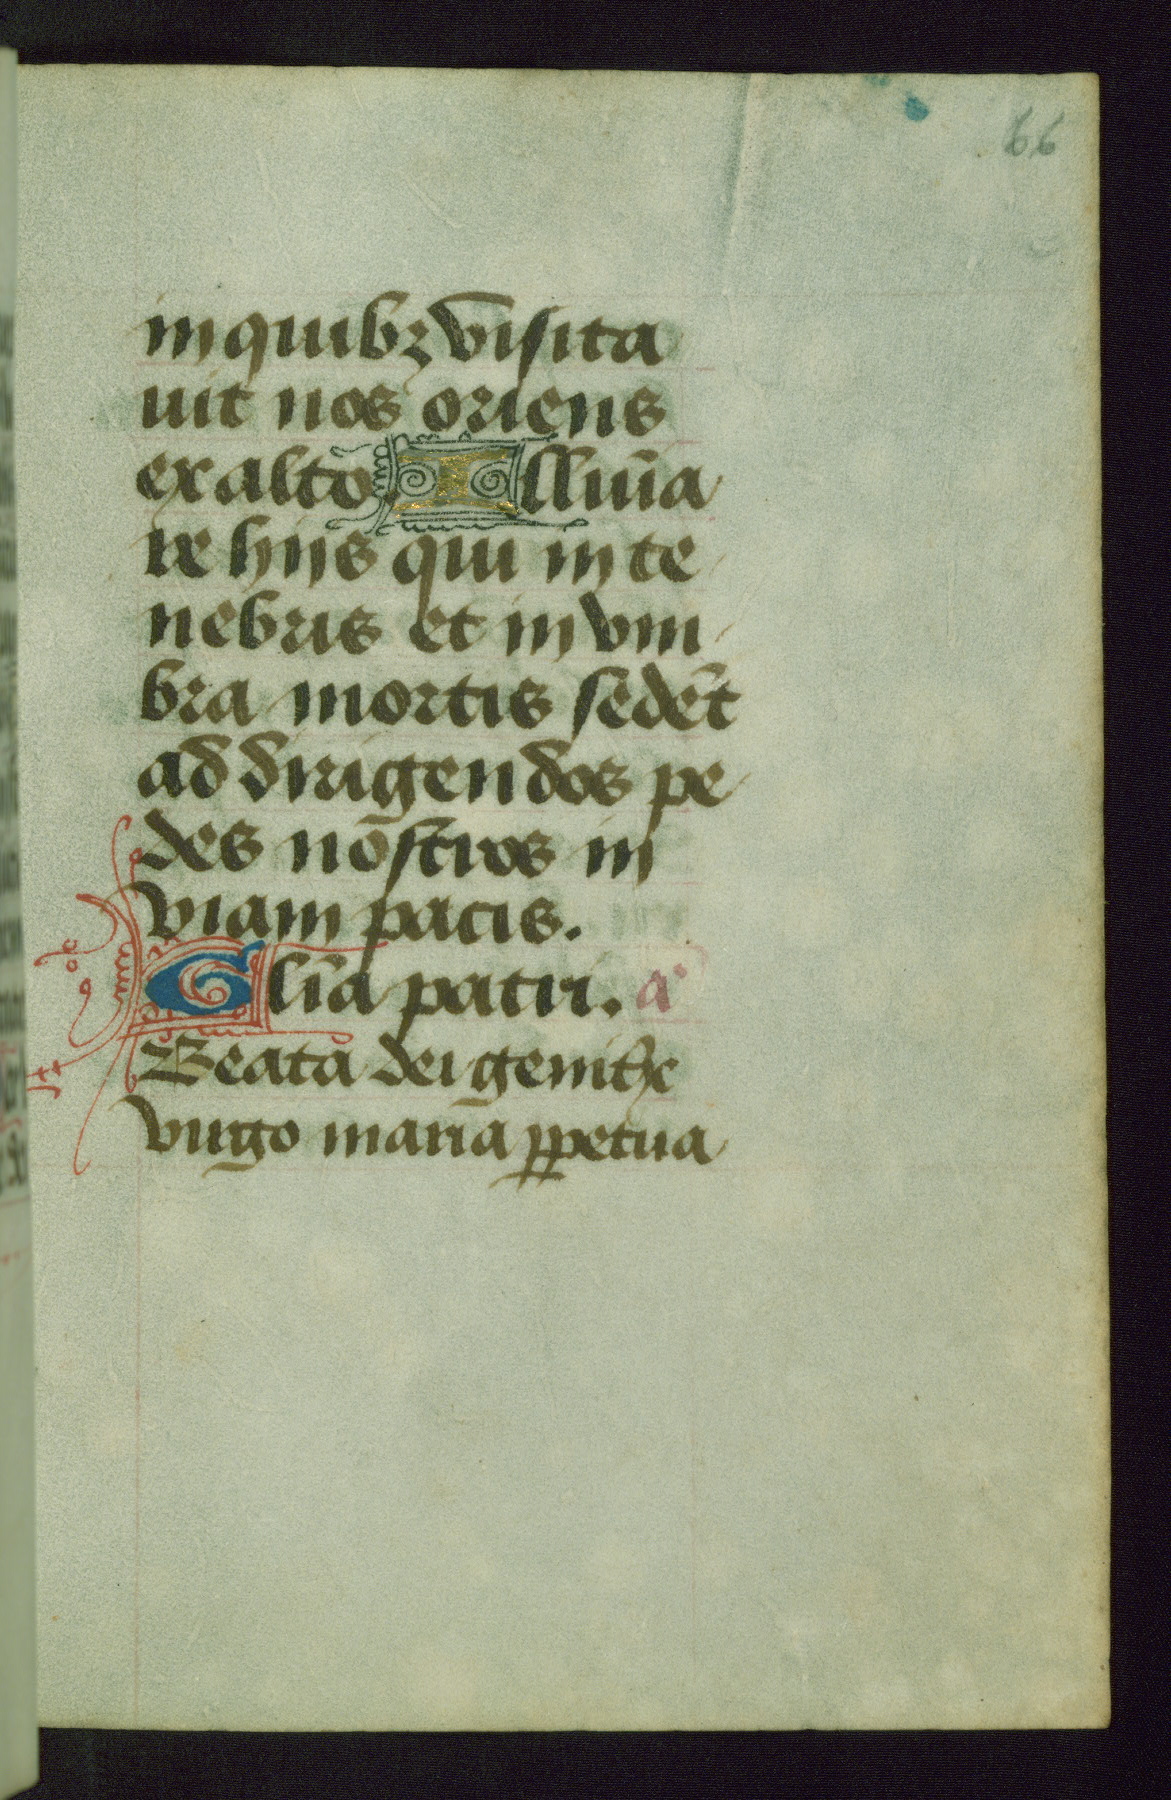 66
in quibꝫ visita
uit nos oriens
ex alto Illuīa
re hiis qui in te
nebris et in vm
bra mortis sedēt
ad dirigendos pe
des nōstros in
viam pacis.
Glīa patri. a'
Beata dei genitͥx
virgo maria ꝑpetua